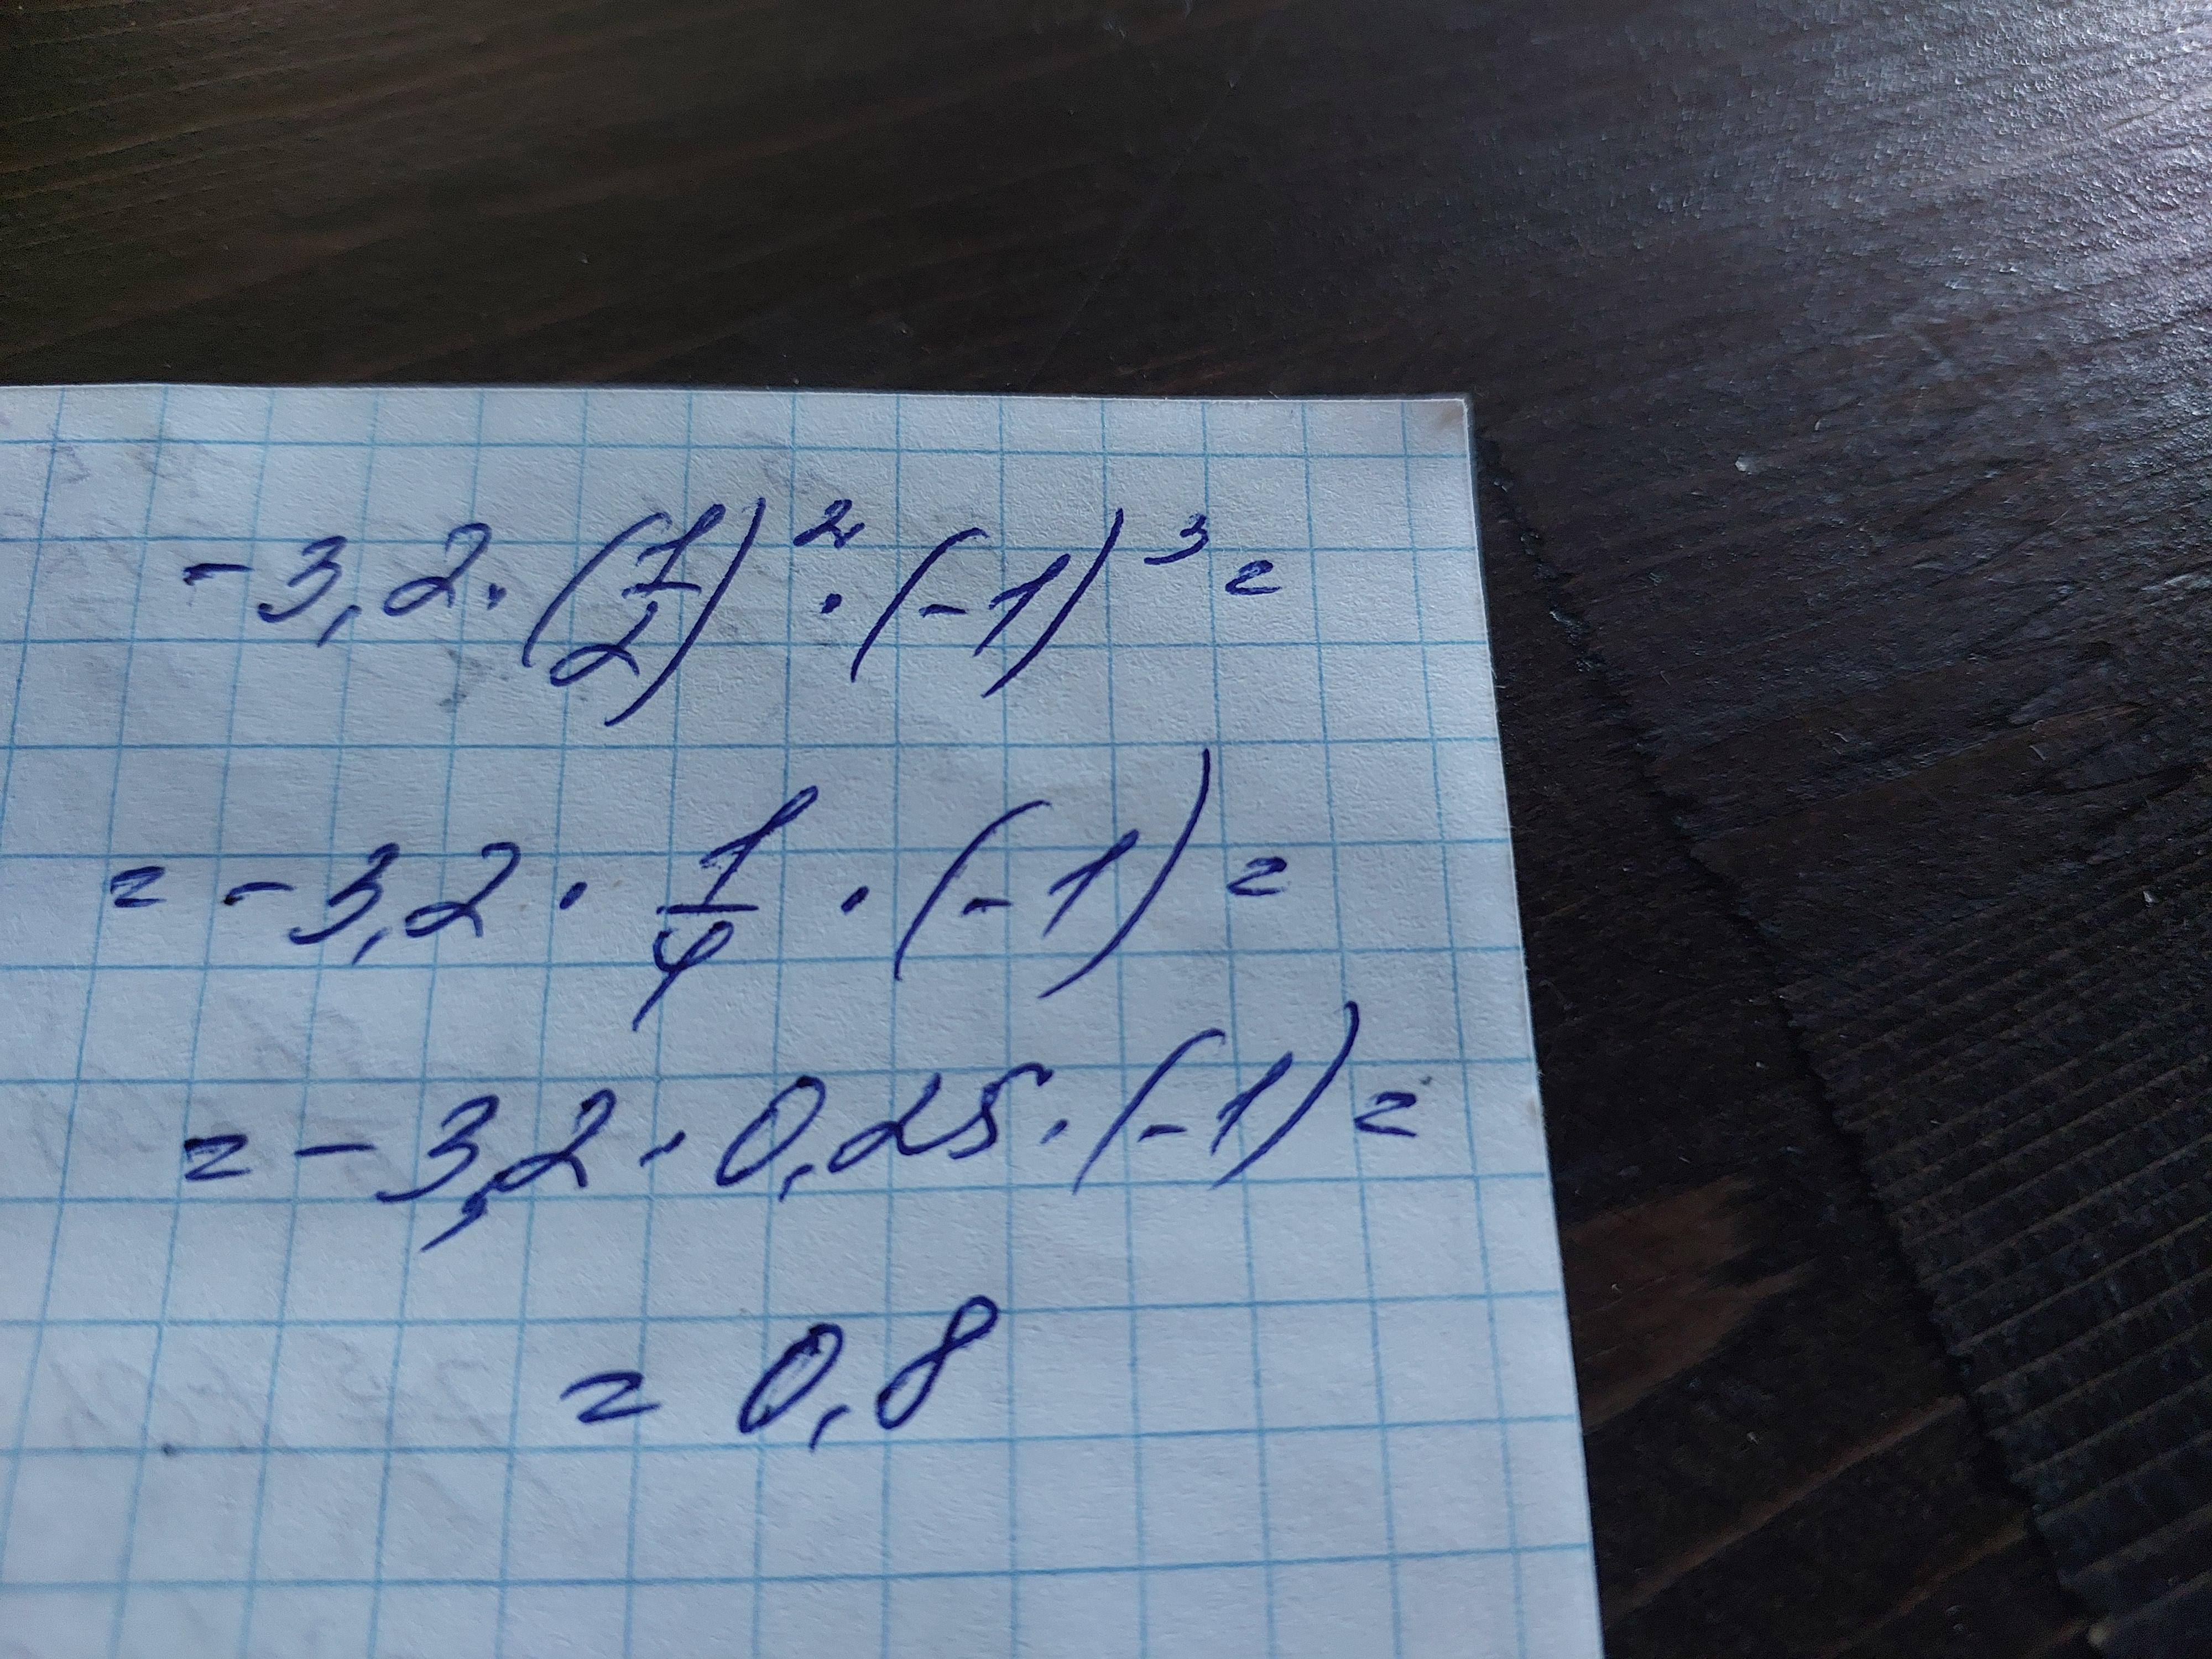 -3,2·(1/2)²·(-1)³=
=-3,2·1/4·(-1)=
=-3,2·0,25·(-1)=
=0,8